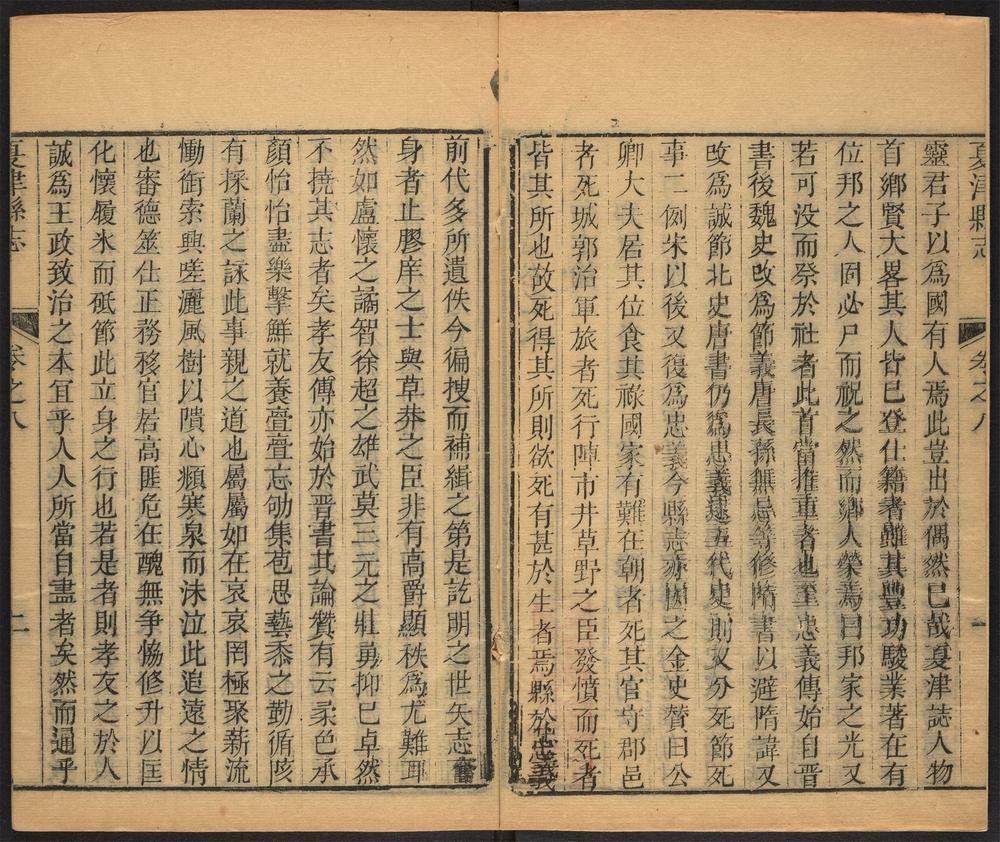 夏津縣志 卷之八 一
靈君子以為國有人焉此豈出於偶然已哉夏津誌人物
首鄉賢大畧其人皆已登仕籍者雖其豐功駿業著在有
位邦之人固必尸而祝之然而鄉人榮焉曰邦家之光又
若可没而祭於社者此首當推重者也至忠義傳始自晋
書後魏史改為節義唐長孫無忌等修隋書以避隋諱又
改為誠節北史唐書仍為忠義薛五代史則又分死節死
事二例宋以後又復為忠義今縣志亦因之金史贊曰公
卿大夫居其位食其祿國家有難在朝者死其官守郡邑
者死城郭治軍旅者死行陣市井草野之臣發憤而死者
皆其所也故死得其所則欲死有甚於生者焉縣於忠義
前代多所遺佚今徧搜而補緝之第是訖明之世矢志奮
身者止膠庠之士與草莽之臣非有高爵顯秩為尤難耳
然如盧懷之譎智徐超之雄武莫三元之壯勇抑已卓然
不撓其志者矣孝友傳亦始於晋書其論贊有云柔色承
顏怡怡盡樂擊鮮就養亹亹忘劬集苞思藝黍之勤循陔
有採蘭之詠此事親之道也屬屬如在哀哀罔極聚薪流
慟銜索興嗟灑風樹以隤心頫寒泉而沬泣此追遠之情
也審德筮仕正務移官居高匪危在醜無争恊修升以匡
化懷履氷而砥節此立身之行也若是者則孝友之於人
誠為王政致治之本宜乎人人所當自盡者矣然而通乎
夏津縣志 卷之八 二